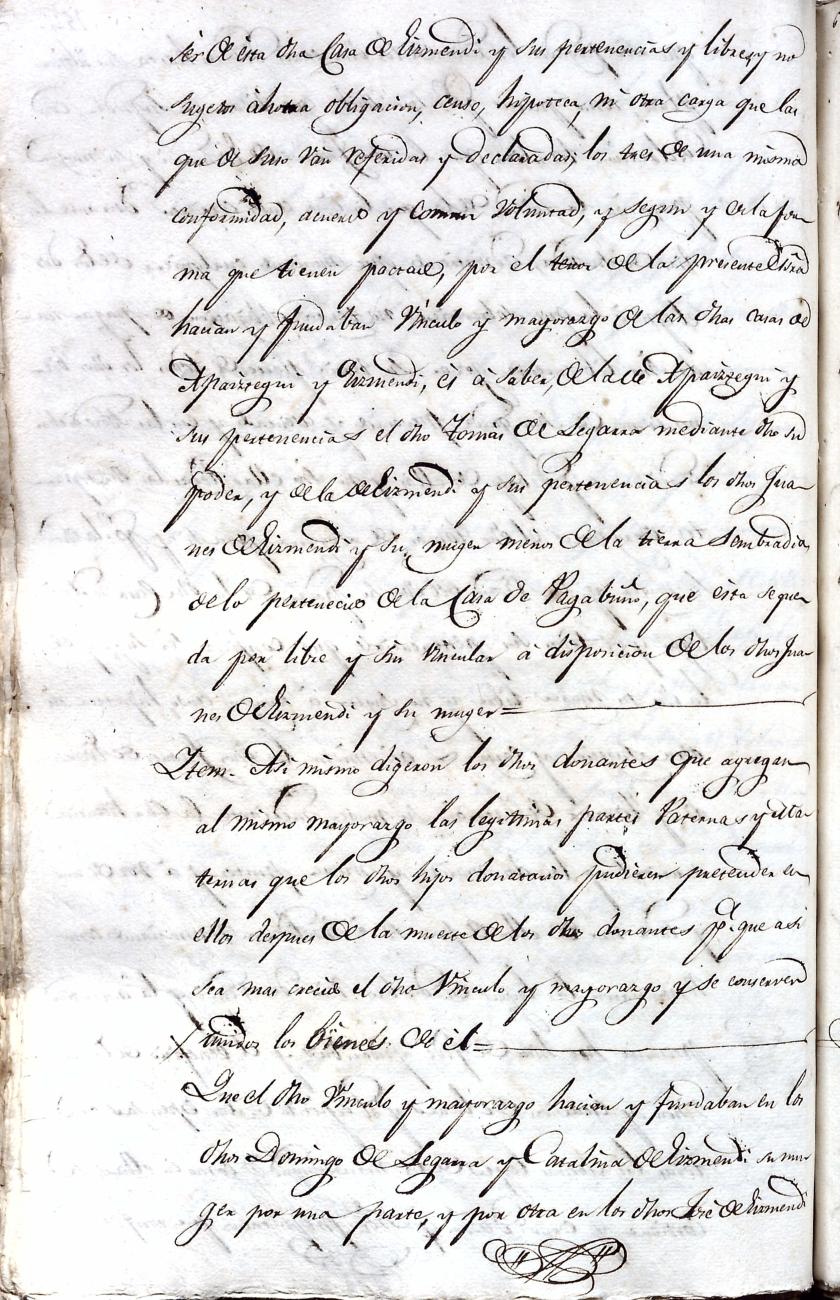 ser de esta dha Casa de Eizmendi y sus pertenencias y libres, y no
sugetos à hotra obligacion, censo, hipoteca, ni otra carga que las
que de suso ván referidas y declaradas, los tres de una misma
conformidad, acuerdo y comun voluntad, y segun y en la for
ma que tienen pactado, por el tenor de la presente Essrâ
hacian y fundaban Vinculo y mayorazgo de las dhas casas de
Apaiztegui y Eizmendi, és à saber, de la de Apaiztegui y
sus pertenencias el dho Tomás de Segarra mediante dho su
poder, y de la de Eizmendi y sus pertenencias los dhos Jua
nes de Eizmendi y su muger menos de la tierra sembradia
de lo pertenecido de la Casa de Pagabuño, que ésta se que
da por libre y sin vincular à disposicion de los dhos Jua
nes de Eizmendi y su muger=
Item. Asi mismo digeron los dhos donantes que agregan
al mismo mayorazgo las legitimas partes Paternas y Ma
ternas que los dhos hijos donatarios pudieren pretender en
ellos despues de la muerte de los dhos donantes pª. que asi
sea mas crecido el dho Vinculo y mayorazgo y se conserven
unidos los Bienes de él=
Que el dho Vinculo y mayorazgo hacian y fundaban en los
dhos Domingo de Segarra y Catalina de Eizmendi su mu
ger por una parte, y por otra en los dhos José de Eizmendi